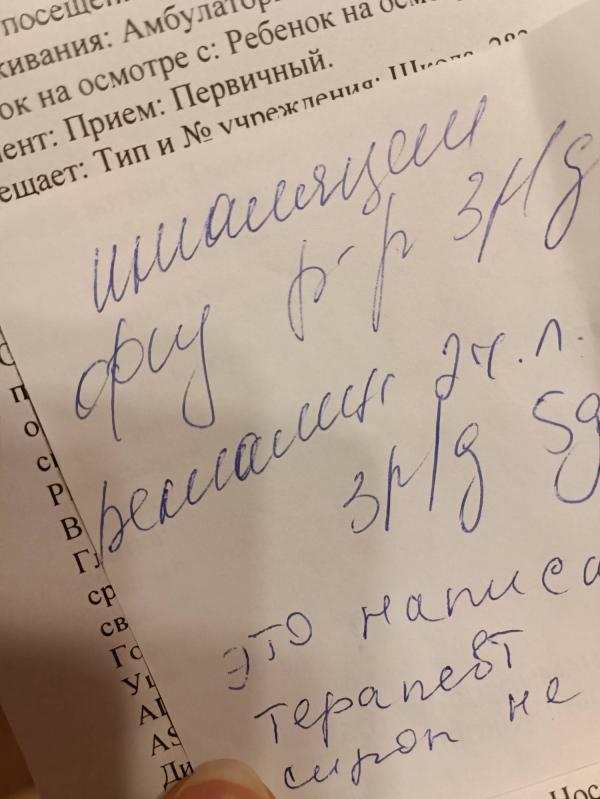 посещен
живания: Амбулатор
ок на осмотре с: Ребенок на осмо
ент: Прием: Первичный.
ещает: Тип и № учреждения: Школа, 283
ингаляции
физ р-р 3р/д
2ч.л.
3р/д 5д
это написа
терапевт
сироп не
п
о
Р
В
Гл
ср
св
Го
AS
Ди
Нос